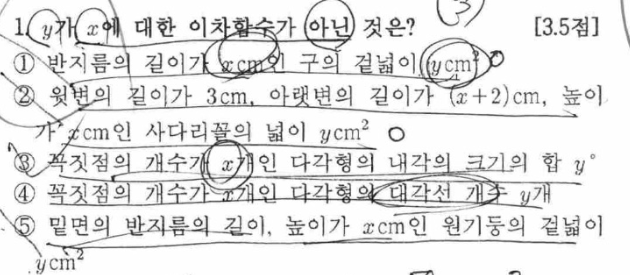 3
1. y가 x에 대한 이차함수가 아닌 것은? [3.5점]
① 반지름의 길이가 xcm인 구의 겉넓이 ycm²
② 윗변의 길이가 3cm, 아랫변의 길이가 (x+2)cm, 높이
가 xcm인 사다리꼴의 넓이 ycm²
③ 꼭짓점의 개수가 x개인 다각형의 내각의 크기의 합 y°
④ 꼭짓점의 개수가 x개인 다각형의 대각선 개수 y개
⑤ 밑면의 반지름의 길이, 높이가 xcm인 원기둥의 겉넓이
ycm²